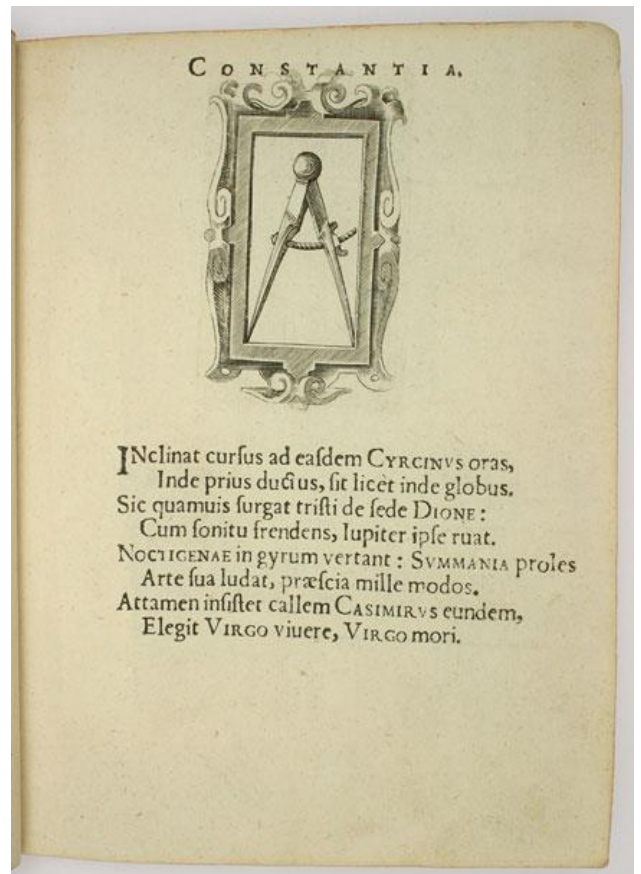 CONSTANTIA.
INclinat curſus ad eaſdem CYRCINVS oras,
Inde prius ductus, ſit licet inde globus.
Sic quamuis ſurgat triſti de ſede DIONE :
Cum ſonitu frendens, Iupiter ipſe ruat.
NOCTIGENAE in gyrum vertant : SVMMANIA proles
Arte ſua ludat, præſcia mille modos.
Attamen inſiſtet callem CASIMIRVS eundem,
Elegit VIRGO viuere, VIRGO mori.